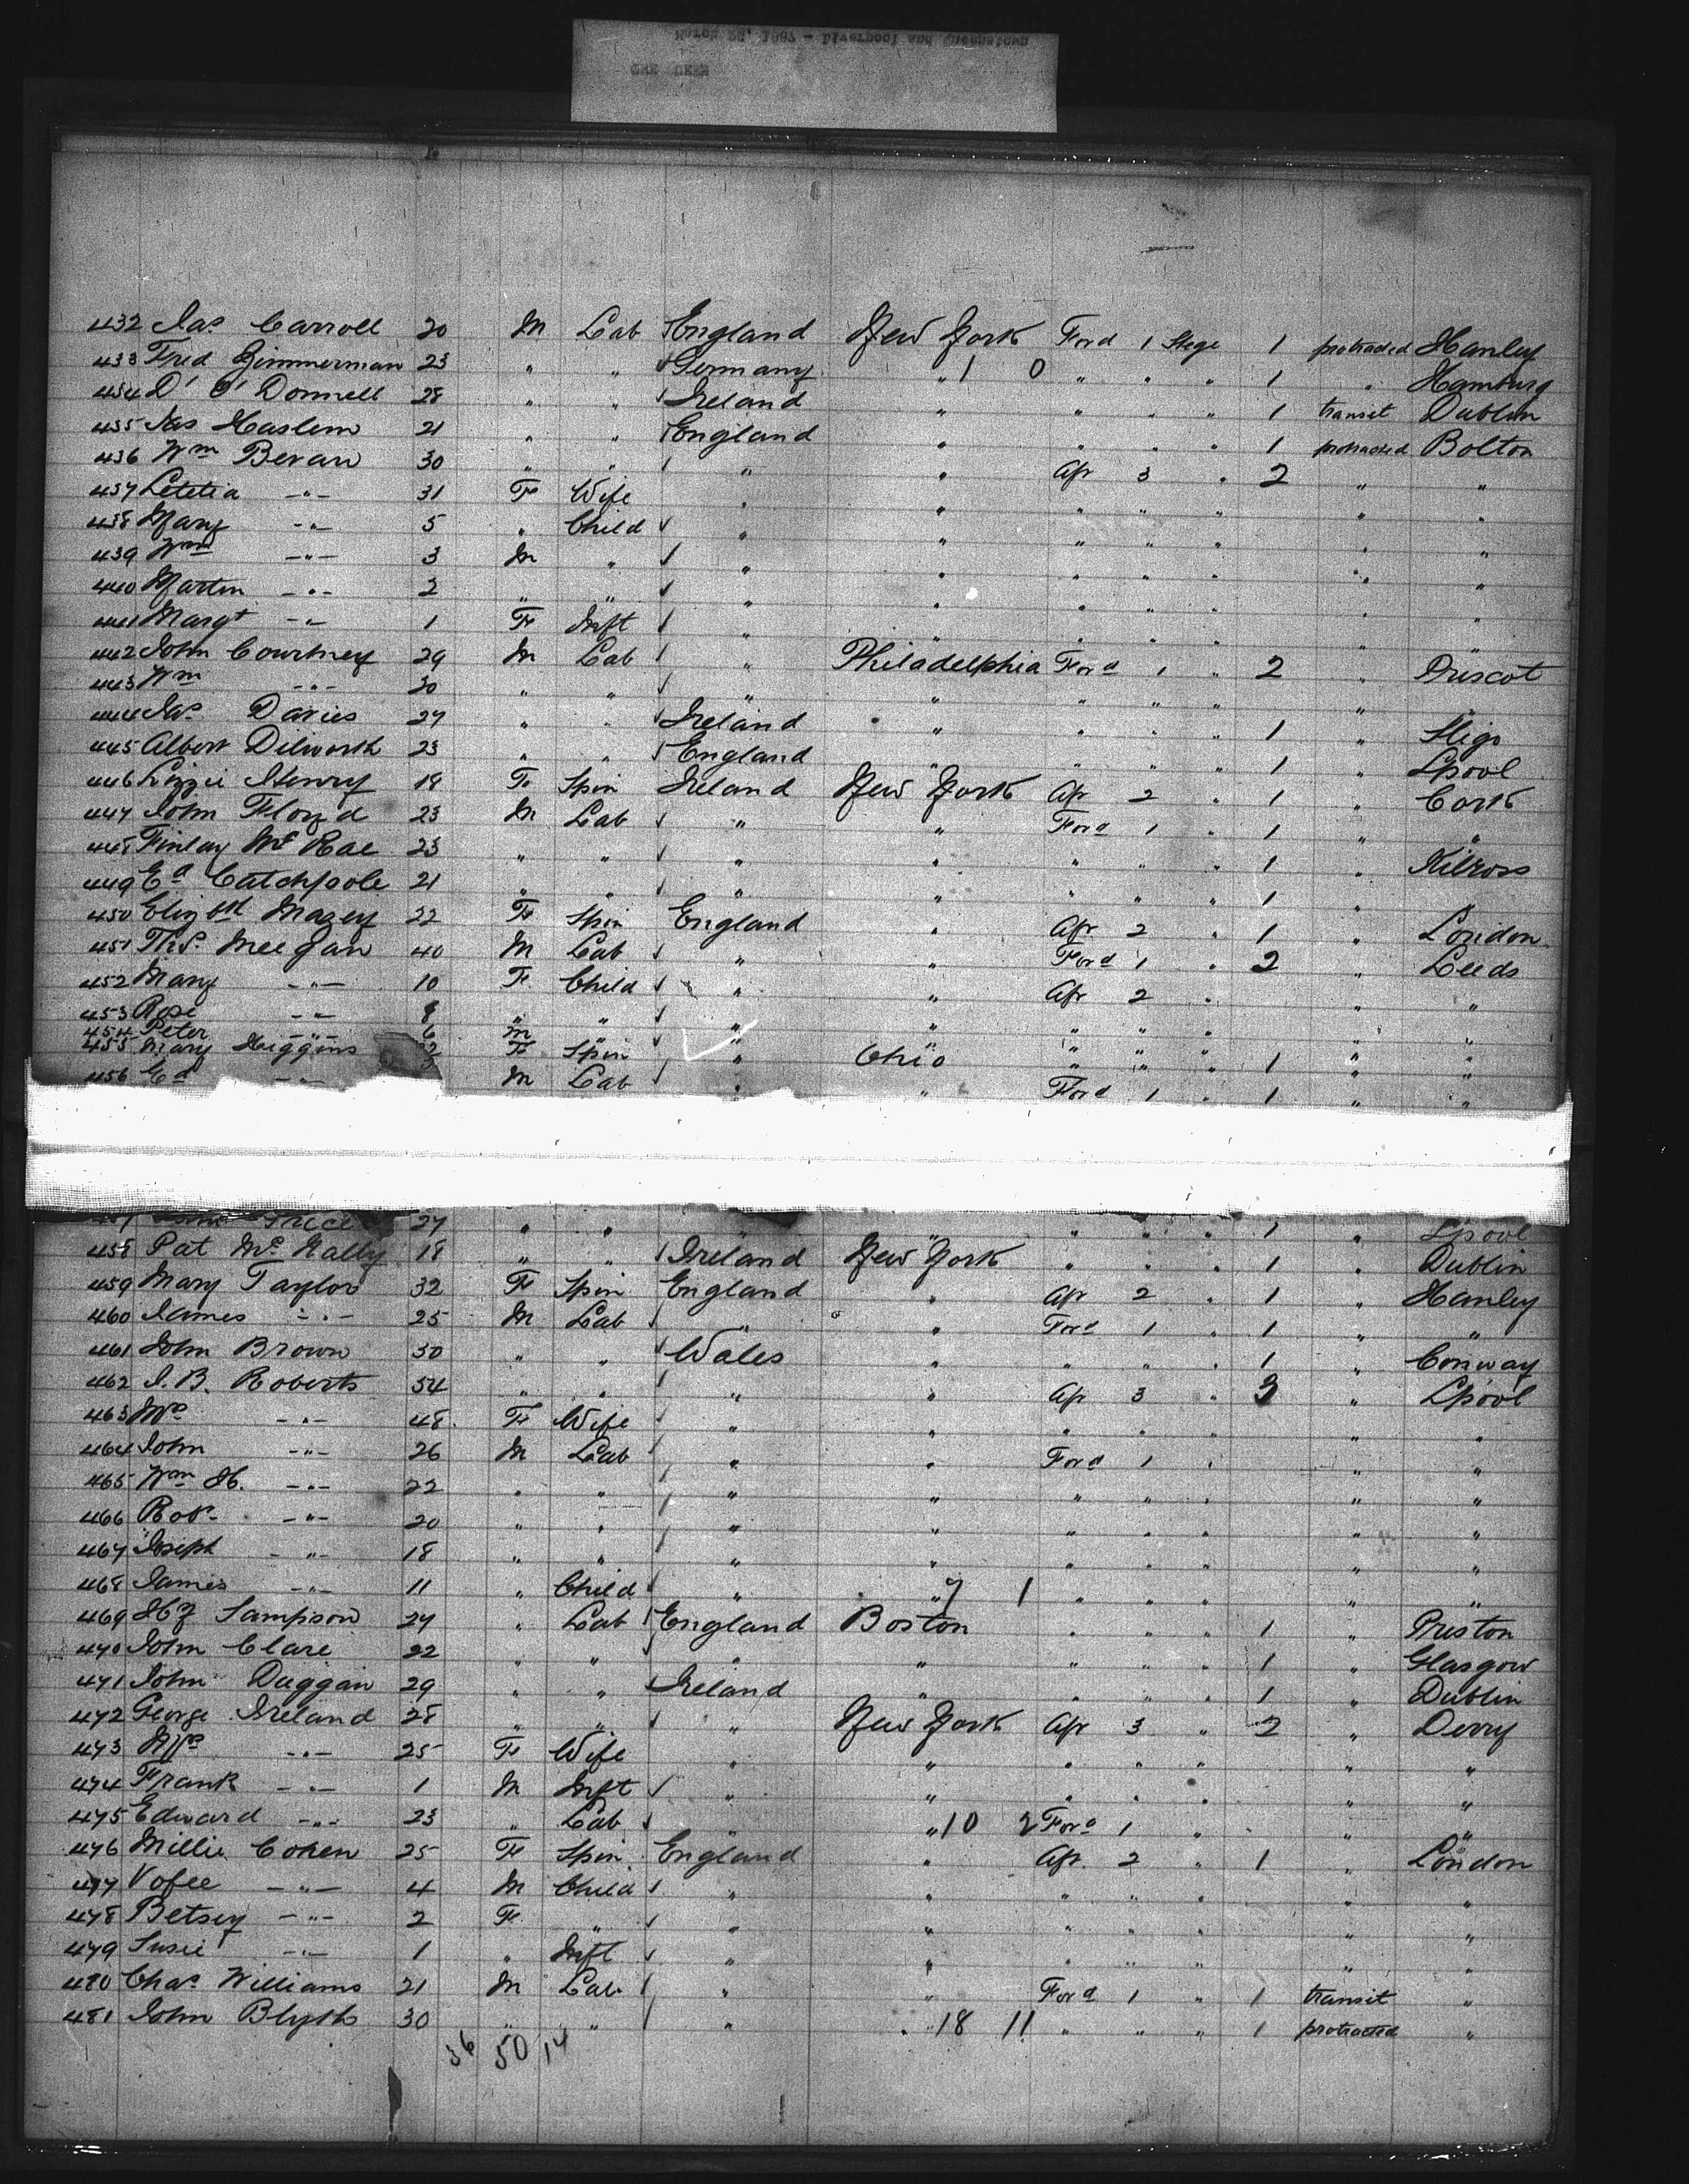 March 1887 - Liverpool and Queenstown
432 Jas Carroll 20 M Lab England New York Ford 1 Stege 1 protracted Hanley
433 Fred Zimmerman 23 " " Germany " 1 0 " " " 1 " Hamburg
434 D' O'Donnell 28 " " Ireland " " " " 1 transit Dublin
435 Jas Haslem 21 " " England " " " " 1 protracted Bolton
436 Wm Bevan 30 " " " " Aft 3 " 2 " "
437 Letetia -"- 31 F Wife " " " " " " "
438 Mary -"- 5 " Child " " " " " " "
439 Wm -"- 3 M " " " " " " " "
440 Martin -"- 2 " " " " " " " " "
441 Margt -"- 1 F Inft " " " " " " "
442 John Courtney 29 M Lab " Philadelphia Ford 1 " 2 " Priscot
443 Wm -"- 20 " " " " " " " " "
444 Jas Davies 27 " " Ireland " " " " 1 " Sligo
445 Albert Dilworth 23 " " England " " " " 1 " Lpool
446 Lizzie Henry 18 F Spin Ireland New York Aft 2 " 1 " Cork
447 John Floyd 23 M Lab " " Ford 1 " 1 " "
448 Finlay McRae 23 " " " " " " " 1 " Kilross
449 Ed Catchpole 21 " " " " " " " 1 " "
450 Elizbth Mazey 22 F Spin England " Aft 2 " 1 " London
451 Thos Meegan 40 M Lab " " Ford 1 " 2 " Leeds
452 Mary -"- 10 F Child " " Aft 2 " " "
453 Rose -"- 8 " " " " " " " " "
454 Peter -"- 6 M " " " " " " " "
455 Mary Higgins F Spin " Ohio " " " 1 " "
456 Ed -"- M Lab " " Ford 1 " 1 " "
Price 27 " " " " " " 1 " Lpool
458 Pat McNally 18 " " Ireland New York " " " 1 " Dublin
459 Mary Taylor 32 F Spin England " Aft 2 " 1 " Hanley
460 James -"- 25 M Lab " " Ford 1 " 1 " "
461 John Brown 30 " " Wales " " " " 1 " Conway
462 J. B. Roberts 54 " " " " Aft 3 " 3 " Lpool
463 Mrs -"- 48 F Wife " " " " " " "
464 John -"- 26 M Lab " " Ford 1 " " "
465 Wm H. -"- 22 " " " " " " " " "
466 Robt -"- 20 " " " " " " " " "
467 Joseph -"- 18 " " " " " " " " "
468 James -"- 11 " Child " " 7 1 " " " " "
469 Hy Sampson 27 " Lab England Boston " " " 1 " Preston
470 John Clare 22 " " " " " " " 1 " Glasgow
471 John Duggan 29 " " Ireland " " " " 1 " Dublin
472 George Ireland 28 " " " New York Aft 3 " 2 " Derry
473 Mrs -"- 25 F Wife " " " " " " "
474 Frank -"- 1 M Inft " " " " " " "
475 Edward -"- 23 " Lab " " 10 2 Ford 1 " " "
476 Millie Cohen 25 F Spin England " Aft 2 " 1 " London
477 Vofee -"- 4 M Child " " " " " " "
478 Betsey -"- 2 F " " " " " " " "
479 Susie -"- 1 " Inft " " " " " " "
480 Chas Williams 21 M Lab " " Ford 1 " 1 transit "
481 John Blyth 30 " " " " 18 11 " " " 1 protracted "
36 50 14